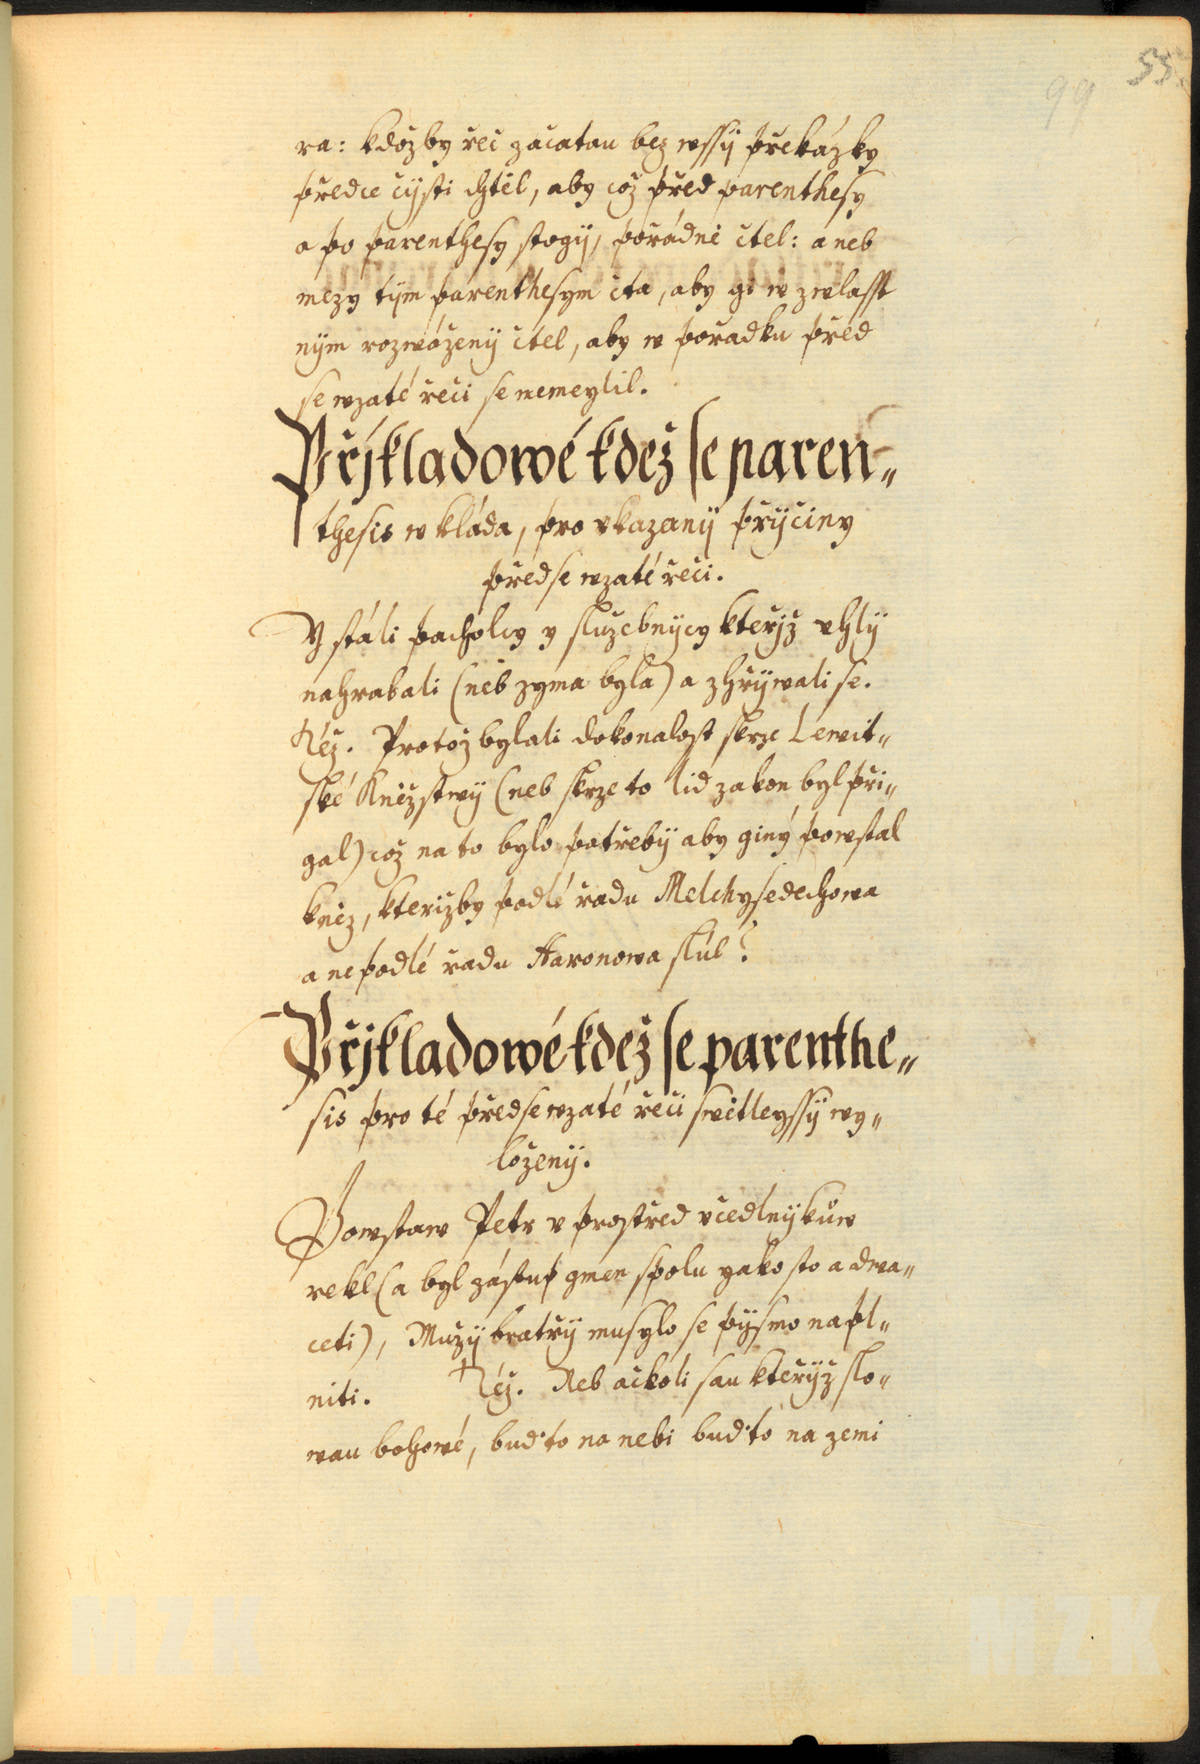 55.
99
ra: kdožby řeč začatau bez wssý překážky
předce čýsti chtěl, aby což před parenthesy
a po parenthesy stogij, pořádně četl: aneb
mezy tým parenthesym čta, aby gi w zwlasst
ným rozwoženij četl, aby w pořadku před
sewzaté řeči se nemeylil.
Přjkladowé kdež se paren„
thesis w kláda, pro vkazanij přýčiny
předsewzaté řeči.
Y stáli pacholcy y služebnýcy kteřjž vhlij
nahrabali (neb zyma byla) a zhřýwali se.
Též. Protož bylali dokonalost skrze Lewit„
ské Kněžstwij (neb skrze to lid zakon byl při„
gal) což na to bylo potřebij aby giný powstal
kněz, kterižby podlé řadu Melchysedechowa
a nepodlé řadu Aaronowa slúl?
Přjkladowé kdež se parenthe„
sis pro té předsewzaté řeči swětleyssý wy„
loženij.
Powstaw Petr v prostřed včedlnýkůw
rekl (a byl zástup gmen spolu yako sto a dwa„
ceti), Mužý bratřý musylo se pýsmo napl„
niti. Též. Neb ačkoli sau kteřýž slo„
wau bohowé, buďto na nebi buďto na zemi
MZK
MZK